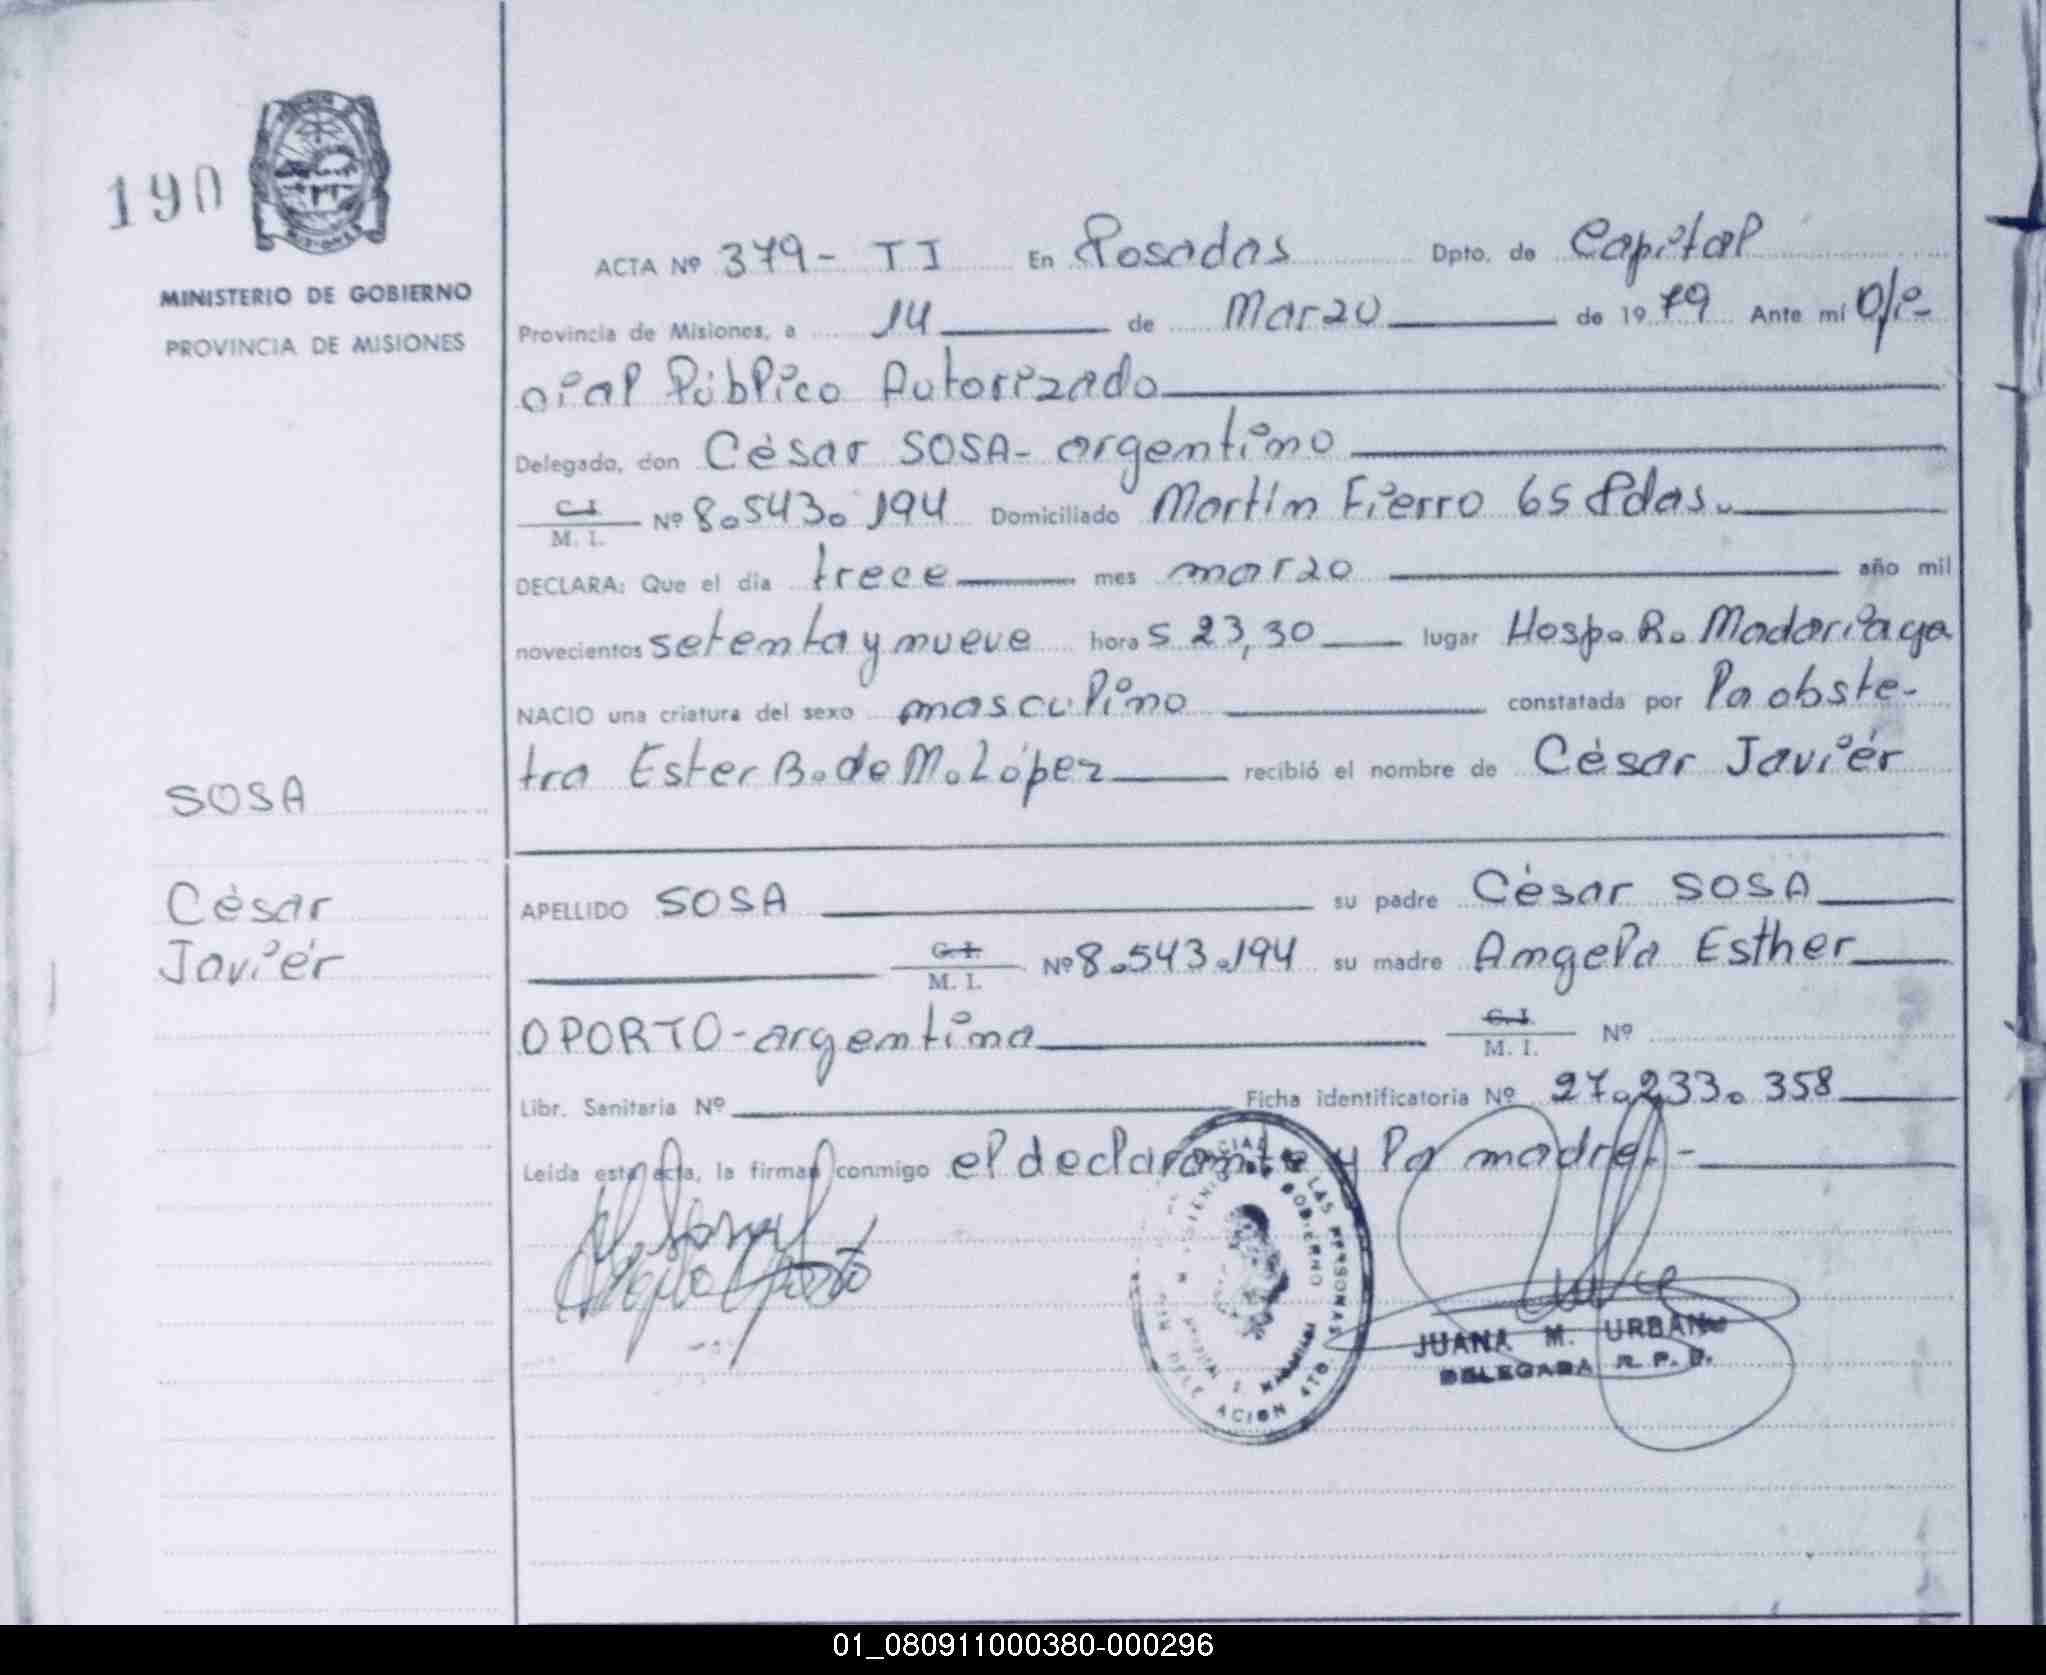 190
MINISTERIO DE GOBIERNO
PROVINCIA DE MISIONES
ACTA Nº 379- TI En Posadas Dpto. de Capital
Provincia de Misiones, a 14 de Marzo de 1979 Ante mí Ofi-
cial Público Autorizado
Delegado, don César SOSA- argentino
C.I. M. I. Nº 8.543.194 Domiciliado Martín Fierro 65 Pdas.
DECLARA: Que el día trece mes marzo año mil
novecientos setenta y nueve horas 23,30 lugar Hosp. R. Madariaga
NACIO una criatura del sexo masculino constatada por la obste-
tra Ester B. de M. López recibió el nombre de César Javiér
SOSA
César
Javiér
APELLIDO SOSA su padre César SOSA
C.I. M. I. Nº 8.543.194 su madre Angela Esther
OPORTO-argentina C.I. M. I. Nº
Libr. Sanitaria Nº Ficha identificatoria Nº 27.233.358
Leída esta acta, la firman conmigo el declarante y la madre.-
Angela Oporto
LAS PERSONAS
GOBIERNO
JUANA M. URBANO
DELEGADA R. P. P.
01_080911000380-000296